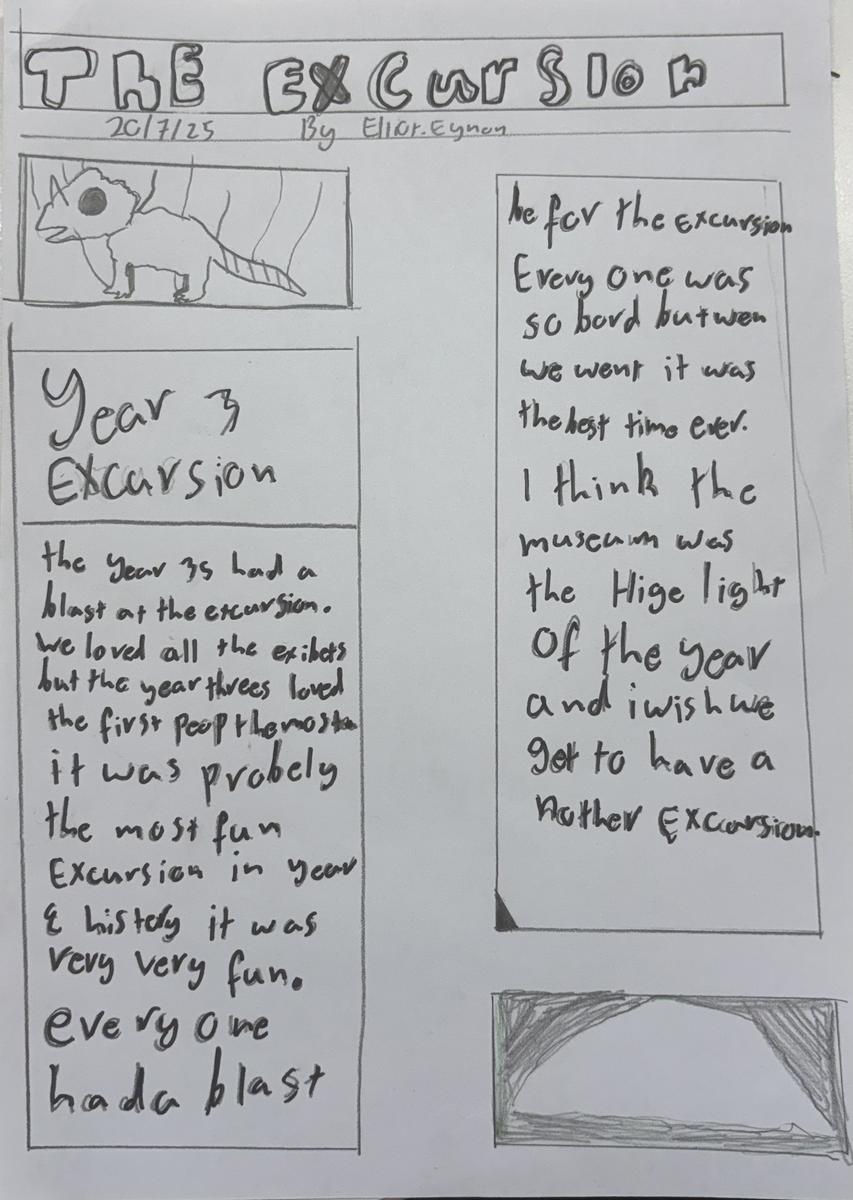 The Excursion
20/7/25 By Elliot.Eynon
Year 3
Excursion
the year 3s had a
blast at the excursion.
we loved all the exibets
but the year threes loved
the first peop the most
it was probely
the most fun
Excursion in year
3 histoy it was
very very fun.
every one
had a blast
be for the excursion
Every one was
so bord but wen
we went it was
the best time ever.
I think the
museum was
the Hige light
Of the year
and i wish we
get to have a
nother Excursion.